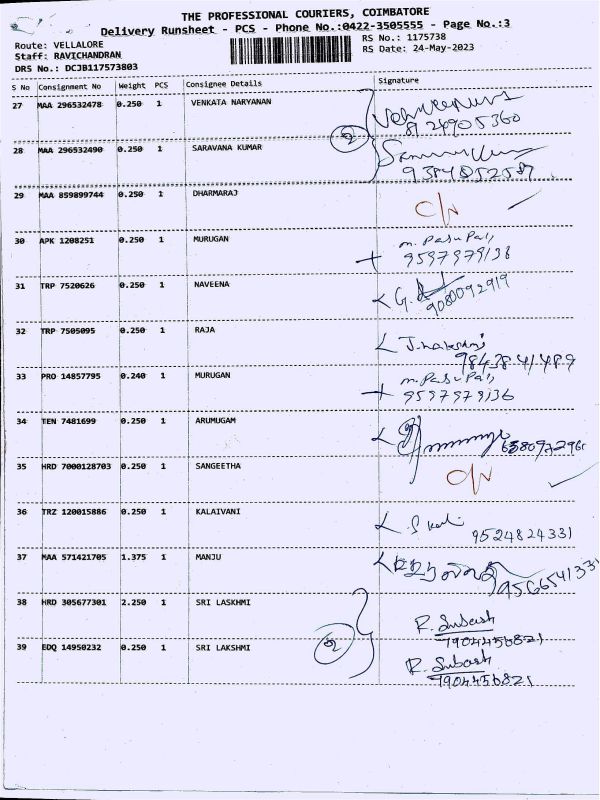 THE PROFESSIONAL COURIERS, COIMBATORE
Delivery Runsheet - PCS - Phone No.:0422-3505555 - Page No.:3
Route: VELLALORE RS No.: 1175738
Staff: RAVICHANDRAN RS Date: 24-May-2023
DRS No.: DCJB117573803
S No Consignment No Weight PCS Consignee Details Signature
27 MAA 296532478 0.250 1 VENKATA NARYANAN
2
28 MAA 296532490 0.250 1 SARAVANA KUMAR
9384852587
29 MAA 859899744 0.250 1 DHARMARAJ
30 APK 1208251 0.250 1 MURUGAN
9597979136
31 TRP 7520626 0.250 1 NAVEENA
9080092919
32 TRP 7505095 0.250 1 RAJA
9843841489
33 PRO 14857795 0.240 1 MURUGAN
9597979136
34 TEN 7481699 0.250 1 ARUMUGAM
35 HRD 7000128703 0.250 1 SANGEETHA
36 TRZ 120015886 0.250 1 KALAIVANI
9524824331
37 MAA 571421705 1.375 1 MANJU
38 HRD 305677301 2.250 1 SRI LASKHMI
R. Subash
7904456821
2
39 EDQ 14950232 0.250 1 SRI LAKSHMI
R. Subash
7904456821